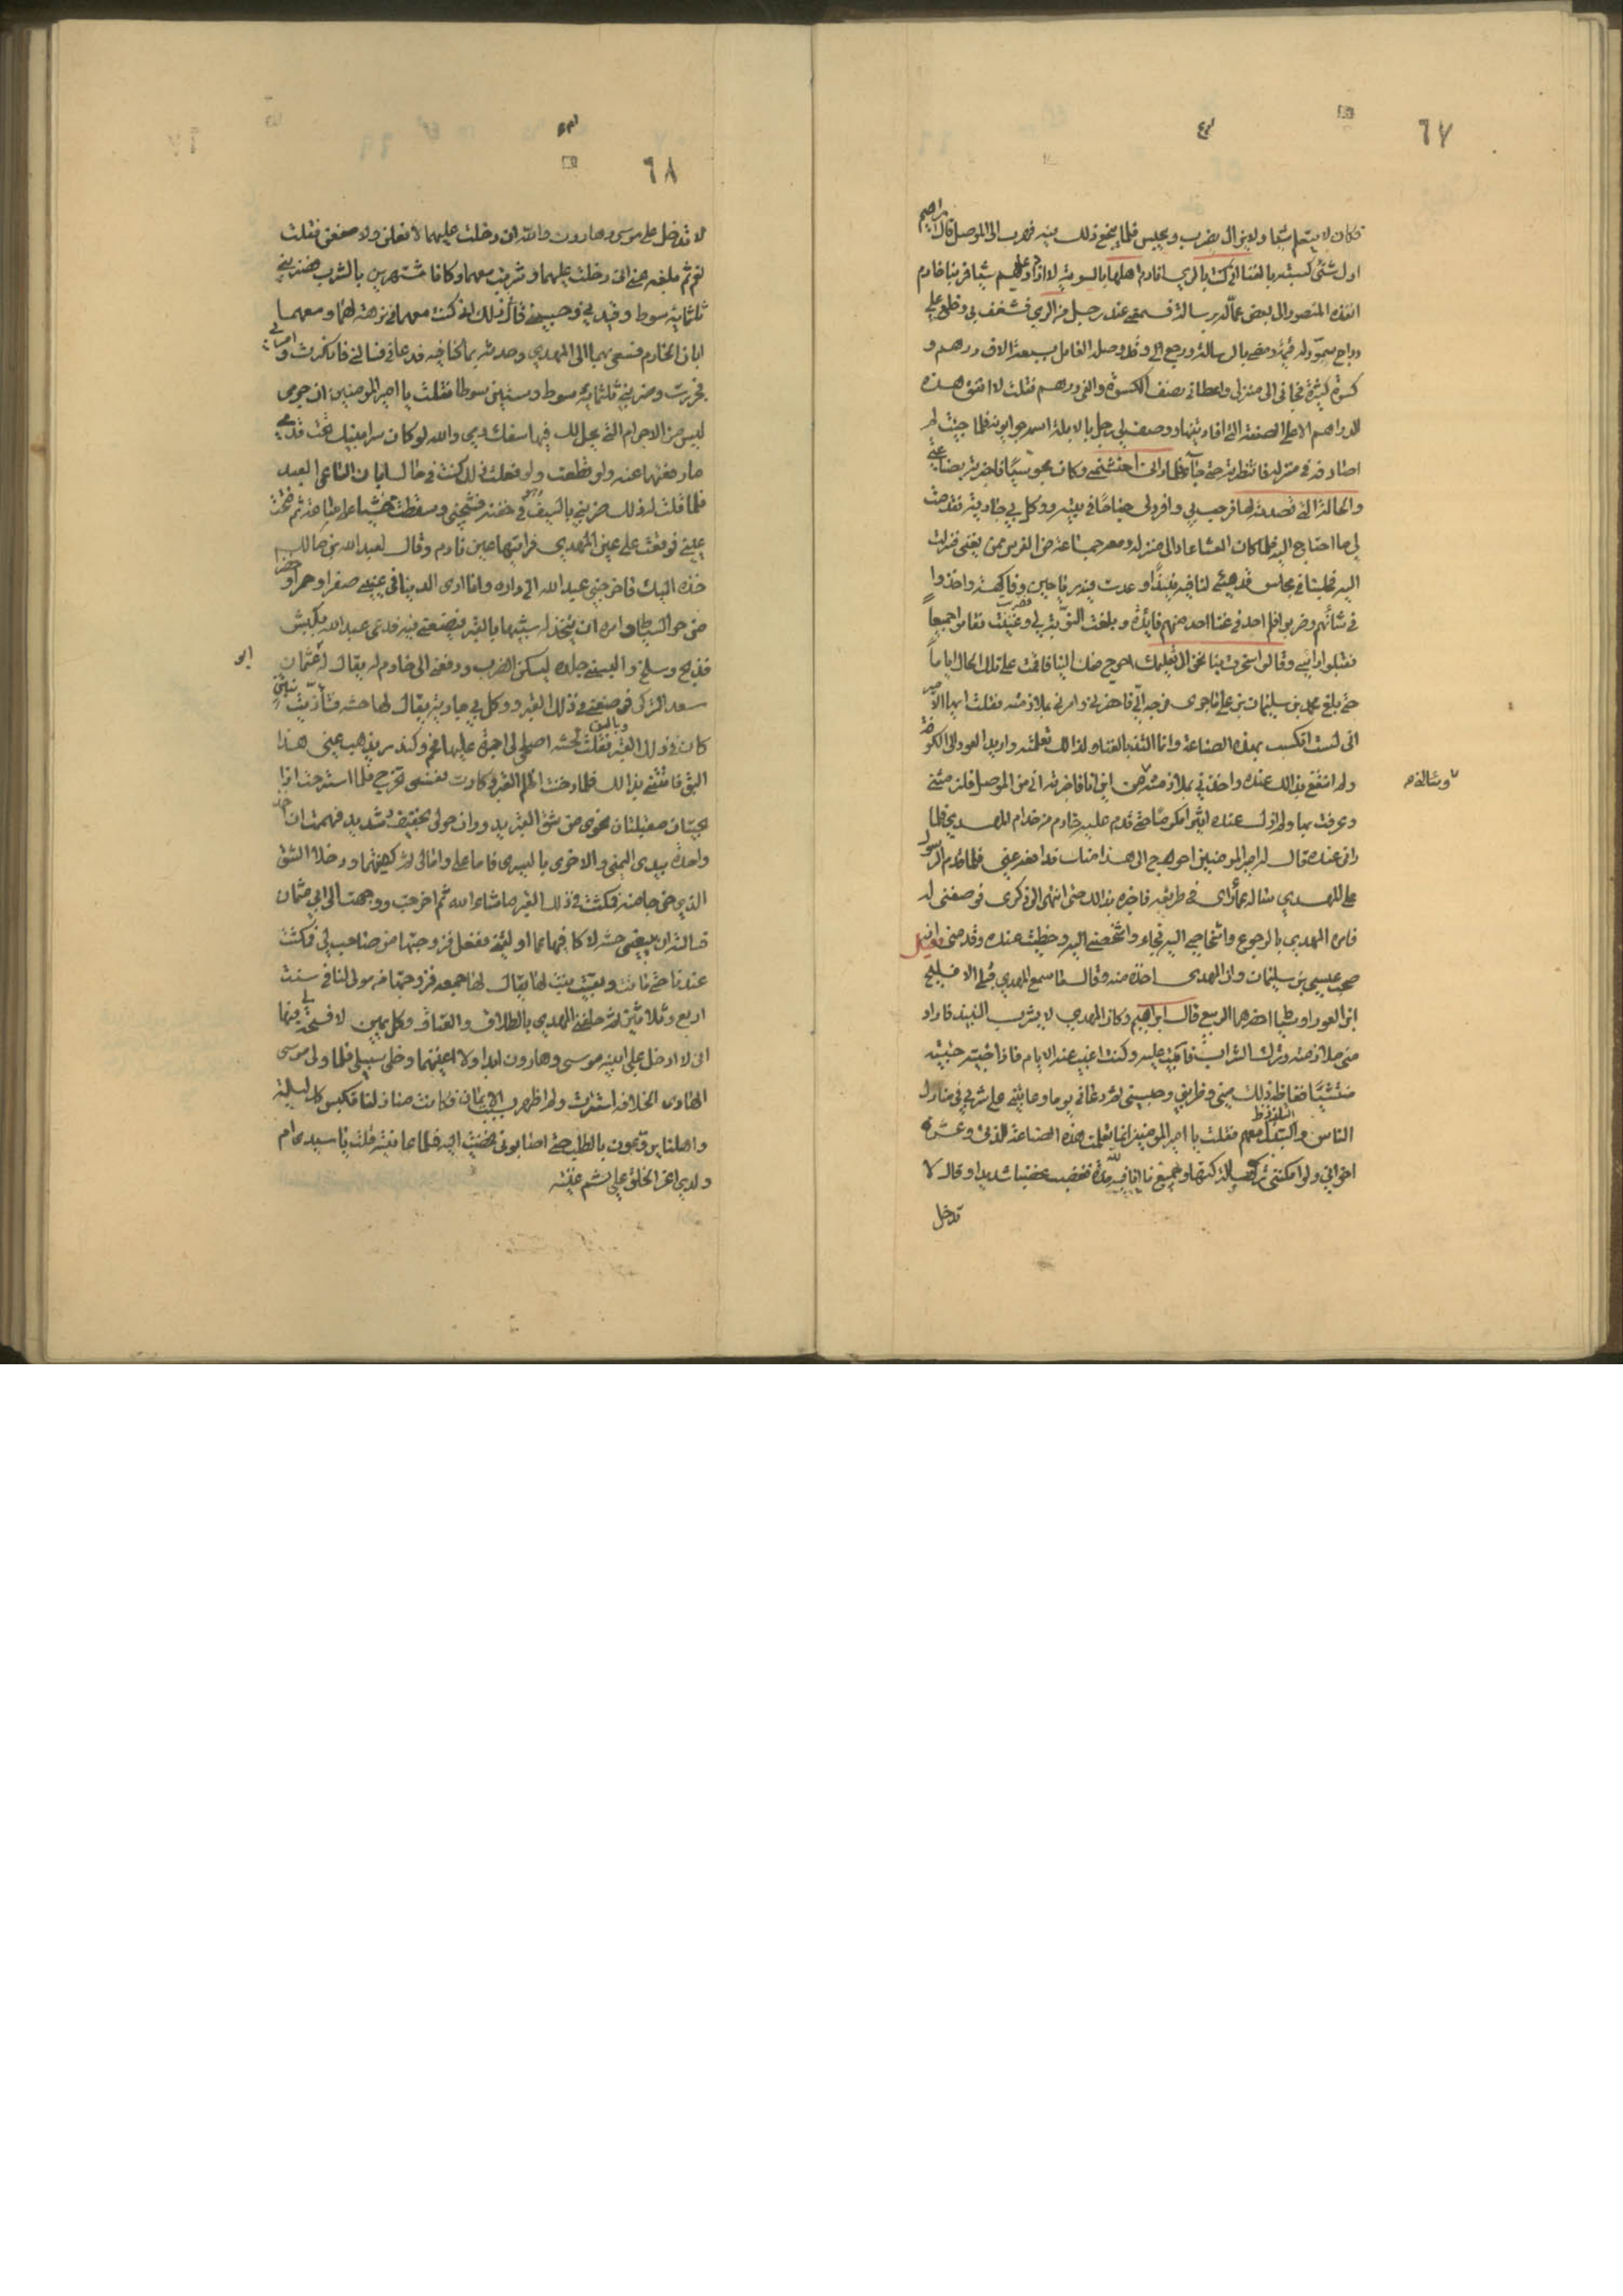 ٦٧
فكان لا يتعلم شيا ولايزال يضرب ويحبس فلما ينجع ذلك فيه فهرب الى الموصل قال ابراهيم
اول شئ كسبته بالغنا انى كنت بالري انادم اهلها بالسوية لا ارزاهم شيا فمر بنا خادم
انفذه المنصور الى بعض عماله برسالة فسمعنى عند رجل من الري فشغف بي وخلع علي
دواج سمور له قيمة ومضى بالرسالة ورجع الي وقد وصله العامل بسبعة الاف درهم و
كسوة كثيرة فجانى الى منزلى واعطانى نصف الكسوة والفى درهم فقلت لا انفق هذه
الدراهم الا على الصنعة التى افادتنيها ووصف لى رجل بالابلة اسمه جوانويه فلما جئت لم
اصادفه فى منزله فانتظرته حتى جا فلما رانى احتشمنى وكان مجوسيا فاخبرته بصناعتى
والحالة التى قصدته لها فرحب بي وافرد لى جناحا فى بيته ووكل بي جاريته فقدمت
لى ما احتاج اليه فلما كان العشا عاد الى منزله ومعه جماعة من الفرس ممن يغنى فنزلت
اليه فجلسنا فى مجلس قد هيئ لنا فيه نبيذا وعدت فيه رياحين وفاكهة واخذوا
فى شأنهم وضربوا فلم اجد فى غنا احد منهم فائدة وبلغت النوبة لى فضربت وغنيت فقاموا جميعا
فقبلوا راسى وقالوا سخرت بنا نحن الى تعليمك احوج منك الينا فاقمت على تلك الحال اياما
حتى بلغ محمد بن سليمان بن على فاجرى من خبرى فاحضرنى وامرنى بملازمته فقلت ايها الامير
انى لست اتكسب بهذه الصناعة وانا التذ بالغناء ولذالك تعلمته واريد العود الى الكوفة
ولم انتفع بذالك عنده واخذنى بملازمته وسالنى من اين انا فاخبرته انى من الموصل فلزمتنى
وعرفت بها ولم ازل عنده اثيرا مكرما حتى قدم عليه خادم من خدام المهدي فلما
رانى عنده قال امير المومنين احوج الى هذا منك فدافعه عنى فلما قدم الرسول
على المهدي ساله عما راى فى طريقه فاخبره بذالك حتى انتهى الى ذكرى فوصفنى له
فامره المهدي بالرجوع واشخاصي اليه فجاء واشخصنى اليه وحظيت عنده وقدمنى
صحبه عيسى بن سليمان وان المهدى اخذه منه وقال ما سمع المهدي قبلى الا فليح
ابن العوراء وسياط احضرهما الربيع قال ابراهيم وكان المهدي لا يشرب النبيذ فاراد
منى ملازمته وترك الشراب فابيت عليه وكنت اغيب عنه الايام فاذا جيته جيته
منتشيا فغاظه ذلك منى وضربنى وحبسنى ثم دعانى يوما وعاتبنى على شربي فى منازل
الناس والتبذل معهم فقلت يا امير المومنين انما تعلمت هذه الصناعة للذتى وعشرة
اخوانى ولو امكننى تركها لتركتها وجميع ما انا فيه لله فغضب غضبا شديدا وقال لا
تدخل
وسالنى م
٦٨
لا تدخل على موسى وهارون والله لئن دخلت عليهما لافعلن ولا صنعن فقلت
نعم ثم بلغه عنى انى دخلت عليهما وشربت معهما وكانا مشتهرين بالشرب فضربنى
ثلثماية سوط وقيدنى وحبسنى قال وذلك انى كنت معهما فى نزهة لهما ومعهما
ابان الخادم فسعى بهما الى المهدي وحدثه بما كنا فيه فدعانى فسالنى فانكرت وامر بى
فجردت وضربنى ثلثماية سوط وستين سوطا فقلت يا امير المومنين ان جرمى
ليس من الاجرام التى يحل لك فيها سفك دمى والله لو كان سر ابنيك تحت قدمي
ما رفعتهما عنه ولو قطعت ولو فعلت ذلك كنت فى حالة ابان الساعى العبد
فلما قلت له ذلك ضربنى بالسيف وهو فى جفنه فشجنى وسقطت مغشيا على ساعة ثم فتحت
عيني فوقعت على عين المهدي فرايتها عين نادم وقال لعبد الله بن مالك
خذه اليك فاخرجنى عبد الله الى داره وانا ارى الدنيا فى عينى صفرا وحمرا وخضرا
من حر السياط وامره ان يتخذ لى شبيها بالقبر فيضعنى فيه فدعى عبد الله بكبش
فذبح وسلخ والبسنى جلده ليسكن الضرب ودفعنى الى خادم له يقال له ابو عثمان
سعد التركى فوضعنى فى ذلك القبر ووكل بي جارية يقال لها حشه فتاذيت بنز
كان فى ذالك القبر وبالبق فقلت لحشه اصلحى لى اجرة عليها فحم وكندر يذهب عنى هذا
البق فاتتنى بذالك فلما دخنت اظلم القبر وكادت نفسى تخرج فلما استرحت اذا
بحيتان مقبلتان نحوى من شق القبر تدوران حولى بحفيف شديد فهممت ان اخذ
واحدة بيدى اليمنى والاخرى باليسرى فاما على واما لى ثم كفيتهما ودخلا الشق
الذي خرجا منه فمكثت فى ذلك القبر ما شاء الله ثم اخرجت ووجهت الى ابي عثمان
اساله ان يبيعنى حشه لاكافيها عما اولتنى ففعل فزوجتها من صاحب لى فمكثت
عندنا حتى ماتت وبقيت بنت لها يقال لها جمعه فزوجتها من مولى لنا فى سنت
اربع وثلاثين ثم حلفنى المهدي بالطلاق والعتاق وكل يمين لا فسحة لى فيها
انى لا ادخل على ابنيه موسى وهارون ابدا ولا اغنيهما وخلى سبيلى فلما ولى موسى
الهادى الخلافه استترت ولم اظهر بسبب الايمان فكانت منازلنا تكبس كل ليلة
واهلنا يروعون بالطلب حتى اصابونى فمضيت اليه فلما عاينته قلت يا سيدى ام
ولدى اعز الخلق علي ثم غنيته